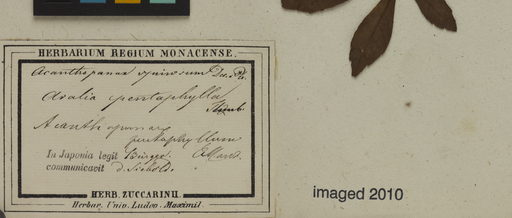 HERBARIUM REGIUM MONACENSE.
Acanthopanax spinosum
Aralia pentaphylla Thunb.
Acanthopanax
pentaphyllum
In Japonia legit Bürger.
communicavit d. Siebold.
HERB. ZUCCARINII.
Herbar. Univ. Ludov. Maximil.
imaged 2010